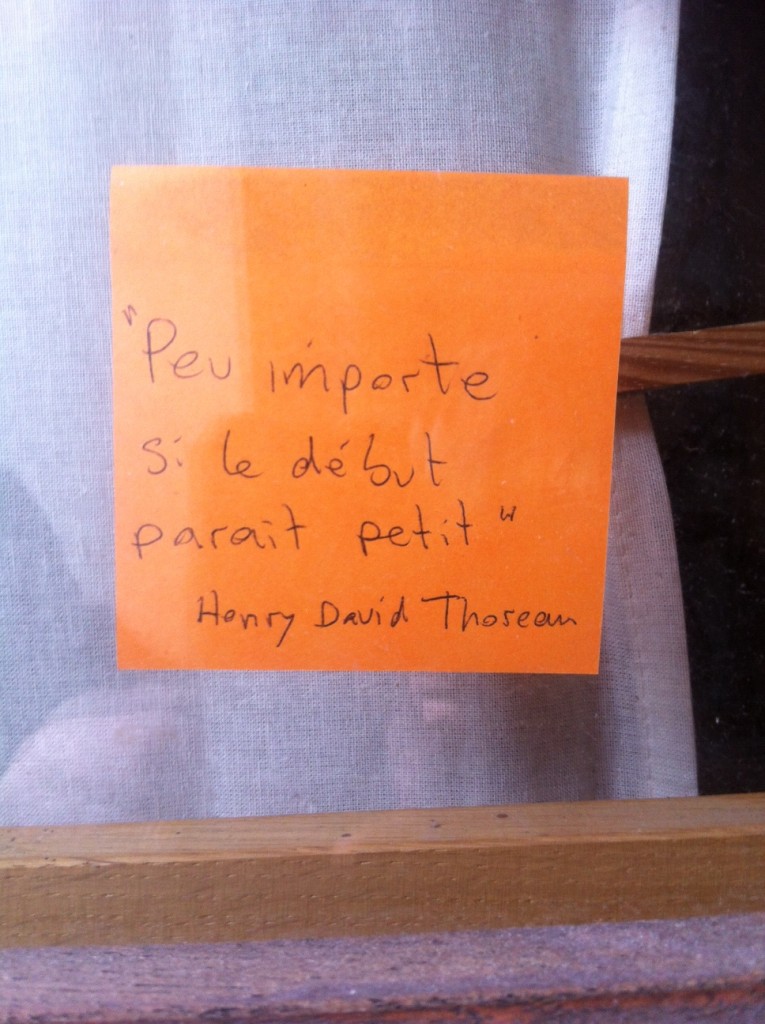 "Peu importe
si le début
parait petit"
Henry David Thoreau